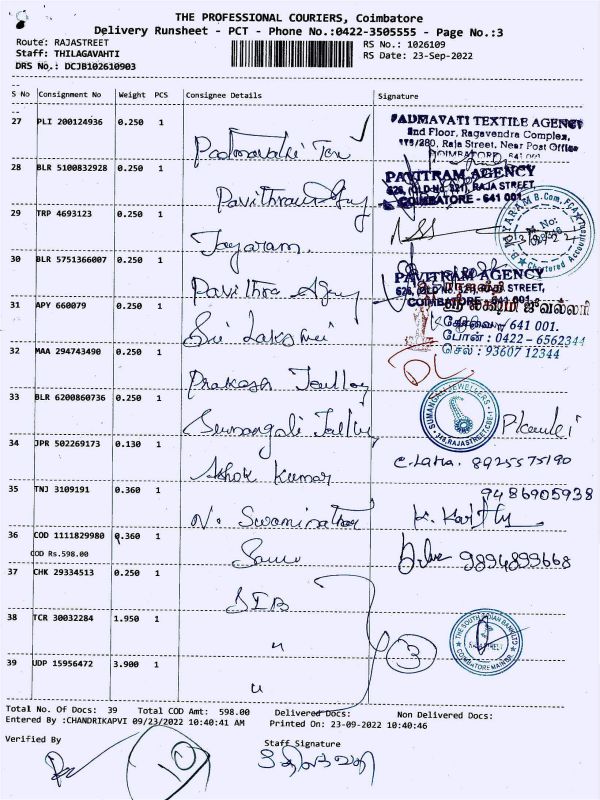 THE PROFESSIONAL COURIERS, Coimbatore
Delivery Runsheet - PCT - Phone No.:0422-3505555 - Page No.:3
Route: RAJASTREET
RS No.: 1026109
Staff: THILAGAVAHTI
RS Date: 23-Sep-2022
DRS No.: DCJB102610903
S No Consignment No Weight PCS Consignee Details Signature
27 PLI 200124936 0.250 1
PADMAVATI TEXTILE AGENCY
2nd Floor, Ragavendra Complex,
Raja Street, Near Post Office
COIMBATORE - 641 001
28 BLR 5100832928 0.250 1 Pavithram Agy
PAVITRAM AGENCY
626, (OLD No. 221), RAJA STREET,
COIMBATORE - 641 001
29 TRP 4693123 0.250 1 Jayaram
Chartered Accountant
30 BLR 5751366007 0.250 1 Pavithra Agy
PAVITRAM AGENCY
COIMBATORE - 641 001
31 APY 660079 0.250 1 Sri Lakshmi
ஸ்ரீ லக்ஷ்மி ஜுவல்லரி
கோவை - 641 001.
போன் : 0422 - 6562344
செல் : 93607 12344
32 MAA 294743490 0.250 1 Prakash
33 BLR 6200860736 0.250 1 Sumangali
SUMANGALI JEWELLERS
34 JPR 502269173 0.130 1 Ashok Kumar
C. Latha. 8925575190
35 TNJ 3109191 0.360 1 N. Swaminathan
9486905938
K. Karthy
36 COD 1111829980 0.360 1
COD Rs.598.00
9894899668
37 CHK 29334513 0.250 1 SIB
38 TCR 30032284 1.950 1 "
3
THE SOUTH INDIAN BANK LTD
COIMBATORE MAIN BR.
39 UDP 15956472 3.900 1 "
Total No. Of Docs: 39 Total COD Amt: 598.00 Delivered Docs: Non Delivered Docs:
Entered By :CHANDRIKAPVI 09/23/2022 10:40:41 AM Printed On: 23-09-2022 10:40:46
Verified By
Staff Signature
10